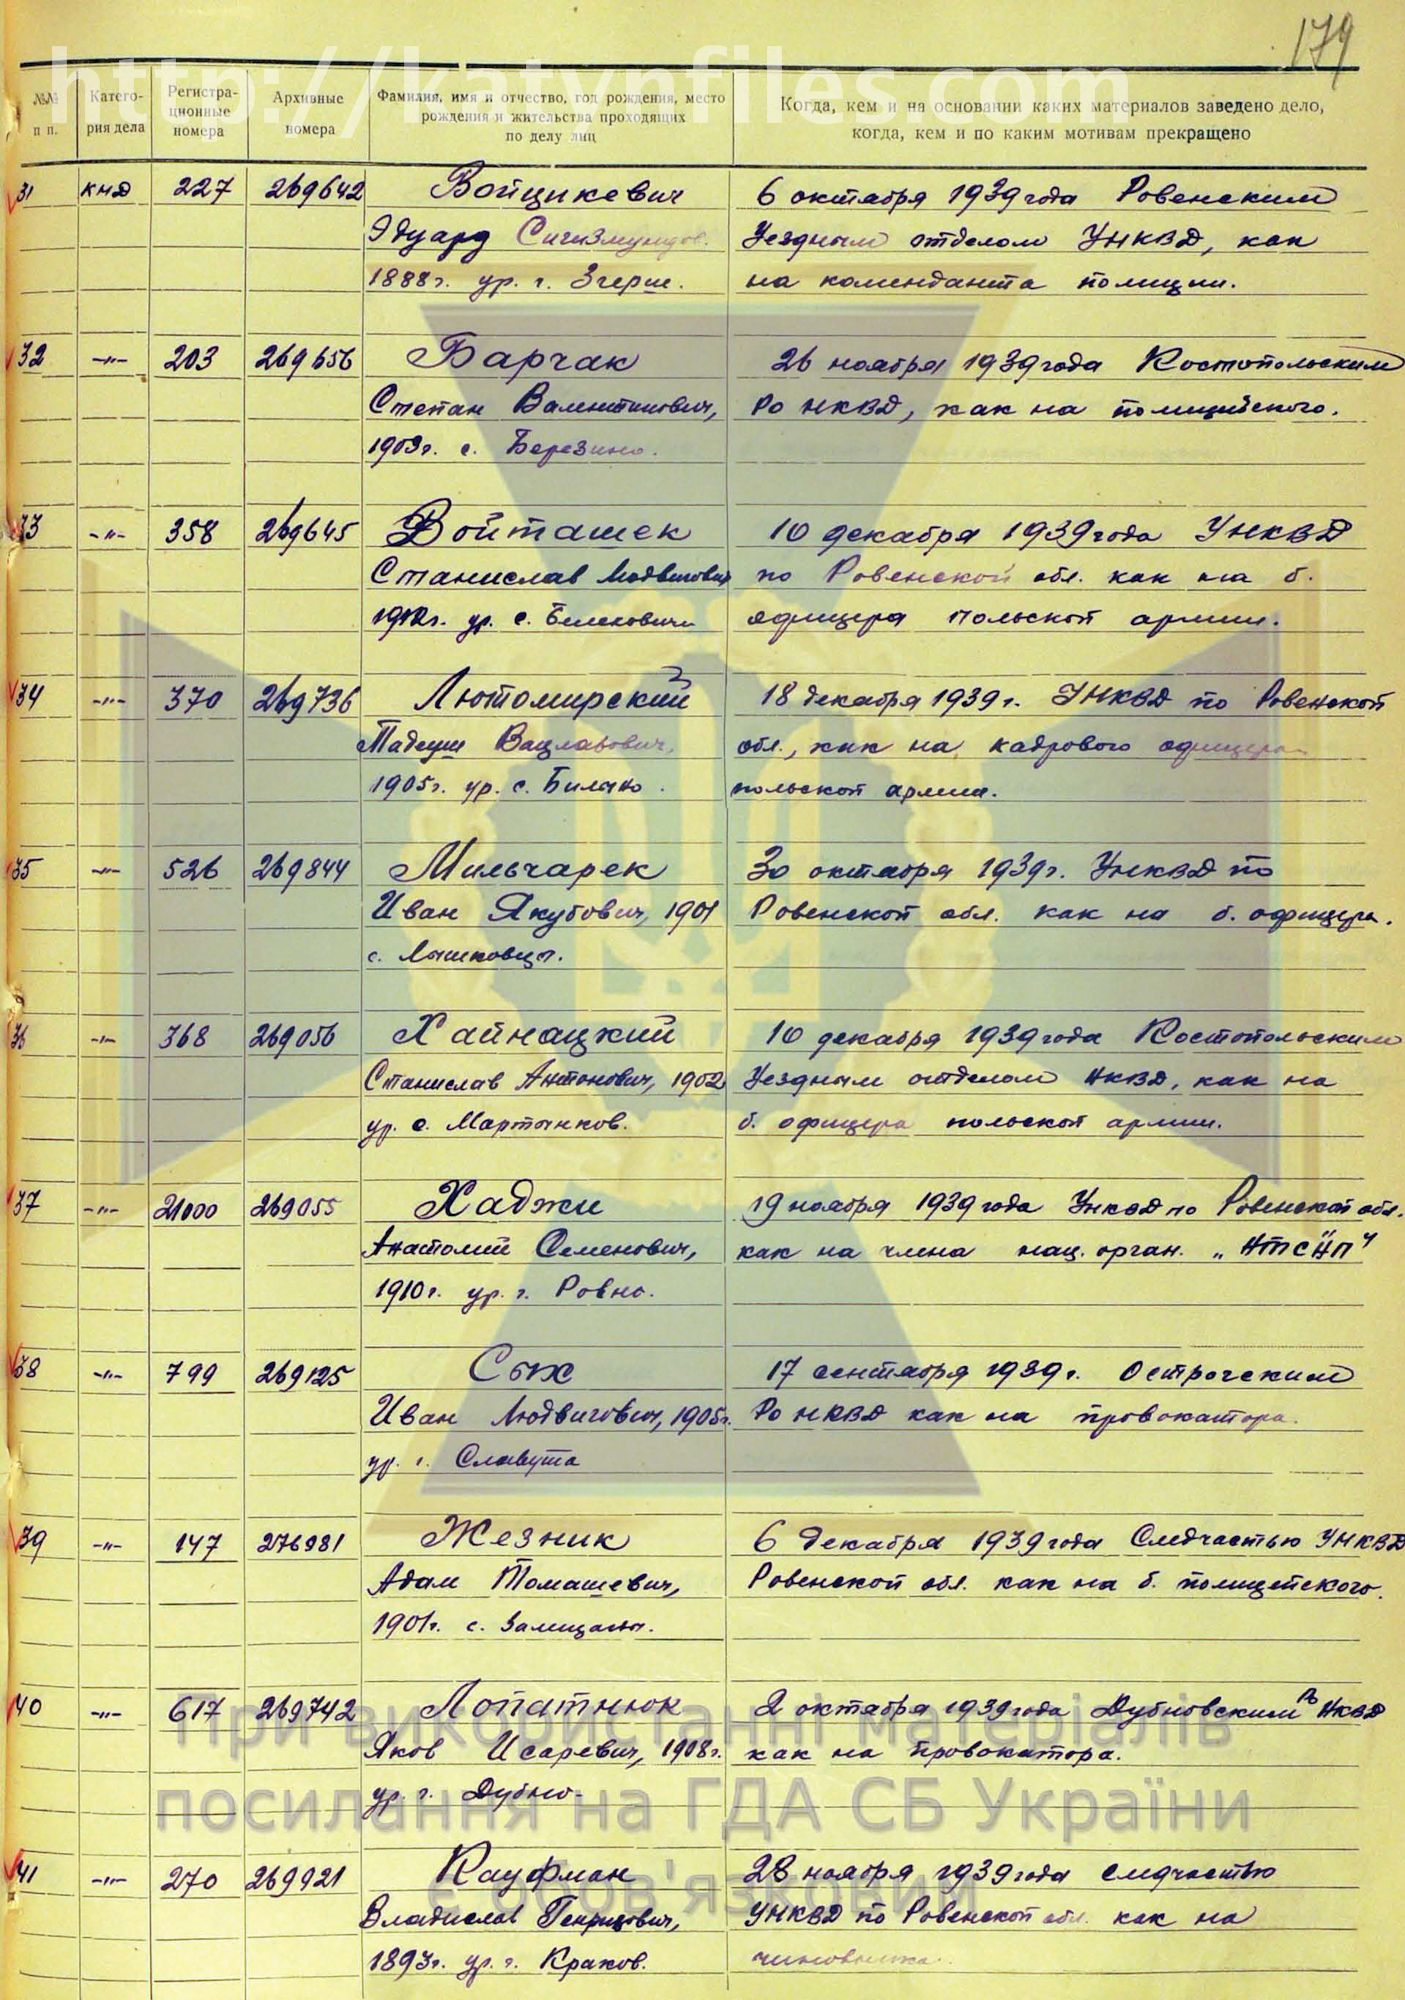 179
http://katynfiles.com
№№ п п.
Катего- рия дела
Регистра- ционные номера
Архивные номера
Фамилия, имя и отчество, год рождения, место рождения и жительства проходящих по делу лиц
Когда, кем и на основании каких материалов заведено дело, когда, кем и по каким мотивам прекращено
31 КНД 227 269642 Войцикевич 6 октября 1939 года Ровенским
Эдуард Сигизмундов. Уездным отделом УНКВД, как
1888г. ур. г. Згерш. на коменданта полиции.
32 -"- 203 269656 Барчак 26 ноября 1939 года Костопольским
Степан Валентинович, РО НКВД, как на полицейского.
1903г. с. Березино.
33 -"- 358 269645 Войташек 10 декабря 1939 года УНКВД
Станислав Людвигович по Ровенской обл. как на б.
1912г. ур. с. офицера польской армии.
34 -"- 370 269736 Лютомирский 18 декабря 1939 г. УНКВД по Ровенской
Тадеуш Вацлавович, обл., как на кадрового офицера
1905г. ур. с. польской армии.
35 -"- 526 269844 Мильчарек 30 октября 1939г. УНКВД по
Иван Якубович, 1901 Ровенской обл. как на б. офицера.
с. Лышковцы.
36 -"- 368 269056 Хайнацкий 10 декабря 1939 года Костопольским
Станислав Антонович, 1902 Уездным отделом НКВД, как на
ур. с. Мартынков. б. офицера польской армии.
37 -"- 21000 269055 Хаджи 19 ноября 1939 года УНКВД по Ровенской обл.
Анатолий Семенович, как на члена нац. орган. „НТСНП"
1910г. ур. г. Ровно.
38 -"- 799 269125 Сых 17 сентября 1939 г. Острогским
Иван Людвигович, 1905г. РО НКВД как на провокатора.
ур. г. Славута
39 -"- 147 276981 Жезник 6 декабря 1939 года Следчастью УНКВД
Адам Томашевич, Ровенской обл. как на б. полицейского.
1901г. с.
40 -"- 617 269742 Лопатнюк 2 октября 1939 года Дубновским РО НКВД
Яков Исаревич, 1908г. как на провокатора.
ур. г. Дубно.
41 -"- 270 269921 Кауфман 28 ноября 1939 года следчастью
Владислав Генрихович, УНКВД по Ровенской обл. как на
1893г. ур. г. Краков. чиновника.
При використанні матеріалів
посилання на ГДА СБ України
є обов'язковим